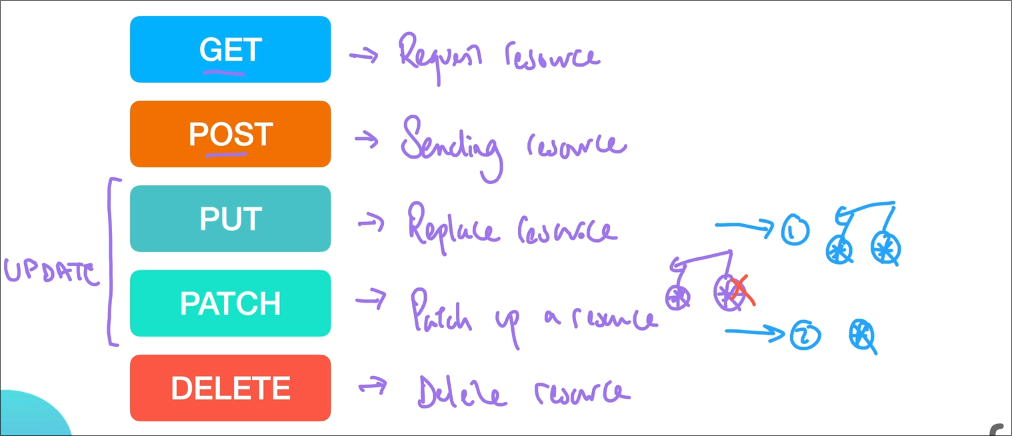 GET → Request resource
POST → Sending resource
PUT → Replace resource
→ 1
UPDATE
PATCH → Patch up a resource
→ 2
DELETE → Delete resource